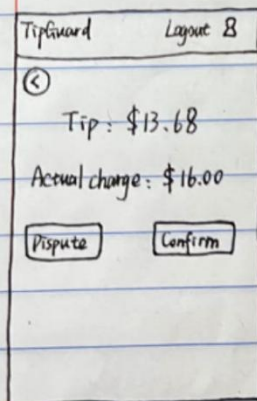 TipGuard Logout
Tip: $13.68
Actual charge: $16.00
Dispute Confirm